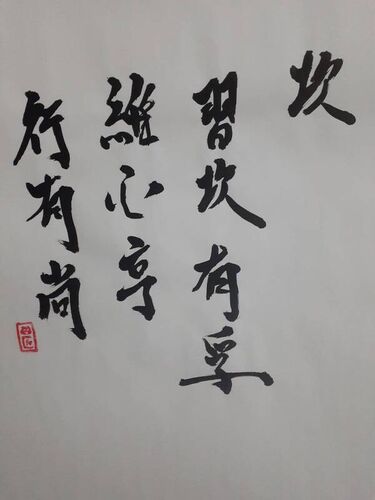 坎
習坎有孚
維心亨
行有尚